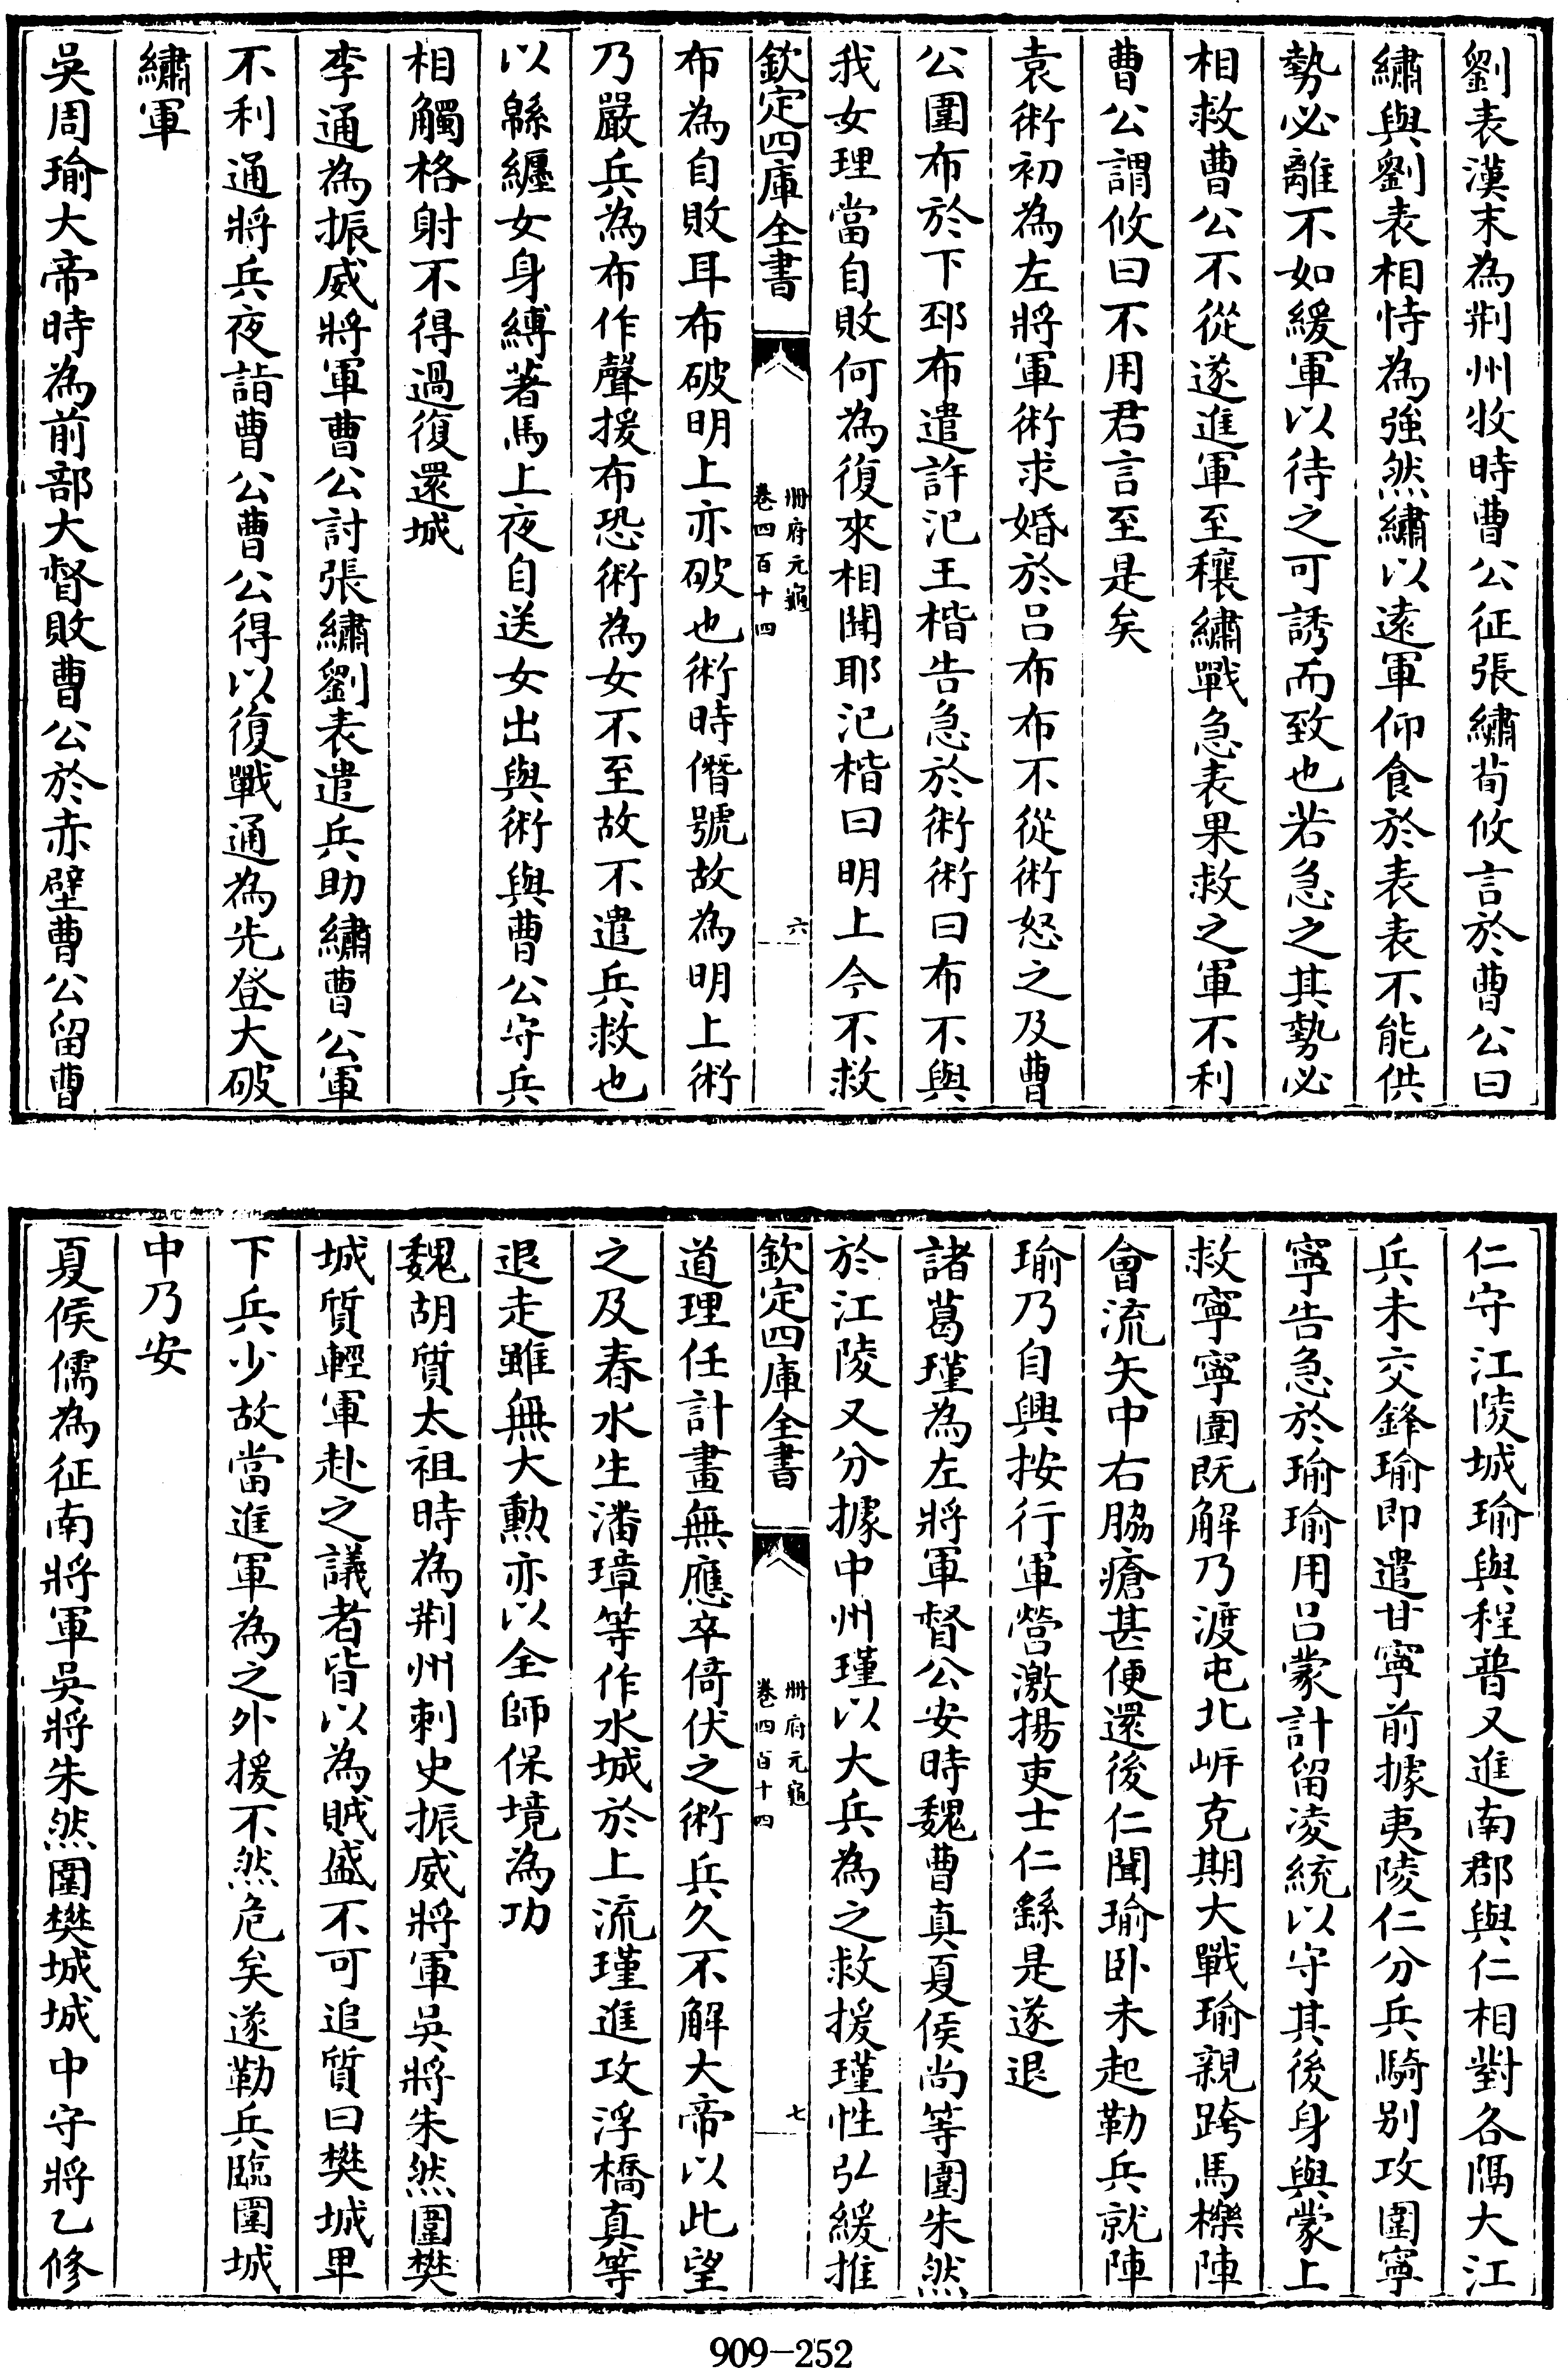 劉表漢末為荆州牧時曹公征張繡荀攸言於曹公曰
繡與劉表相恃為強然繡以遠軍仰食於表表不能供
勢必離不如緩軍以待之可誘而致也若急之其勢必
相救曹公不從遂進軍至穰繡戰急表果救之軍不利
曹公謂攸曰不用君言至是矣
袁術初為左將軍術求婚於呂布布不從術怒之及曹
公圍布於下邳布遣許汜王楷告急於術術曰布不與
我女理當自敗何為復來相聞耶汜楷曰明上今不救
欽定四庫全書
冊府元龜
卷四百十四
六
布為自敗耳布破明上亦破也術時僭號故為明上術
乃嚴兵為布作聲援布恐術為女不至故不遣兵救也
以緜纒女身縛著馬上夜自送女出與術與曹公守兵
相觸格射不得過復還城
李通為振威將軍曹公討張繡劉表遣兵助繡曹公軍
不利通將兵夜詣曹公曹公得以復戰通為先登大破
繡軍
吳周瑜大帝時為前部大督敗曹公於赤壁曹公留曹
仁守江陵城瑜與程普又進南郡與仁相對各隔大江
兵未交鋒瑜即遣甘寧前據夷陵仁分兵騎别攻圍寧
寧告急於瑜瑜用呂蒙計留凌統以守其後身與蒙上
救寧寧圍既解乃渡屯北岍克期大戰瑜親跨馬櫟陣
會流矢中右脇瘡甚便還後仁聞瑜卧未起勒兵就陣
瑜乃自興按行軍營激揚吏士仁繇是遂退
諸葛瑾為左將軍督公安時魏曹真夏侯尚等圍朱然
於江陵又分據中州瑾以大兵為之救援瑾性弘緩推
欽定四庫全書
冊府元龜
卷四百十四
七
道理任計畫無應卒倚伏之術兵久不解大帝以此望
之及春水生潘璋等作水城於上流瑾進攻浮橋真等
退走雖無大勲亦以全師保境為功
魏胡質太祖時為荆州刺史振威將軍吳將朱然圍樊
城質輕軍赴之議者皆以為賊盛不可追質曰樊城卑
下兵少故當進軍為之外援不然危矣遂勒兵臨圍城
中乃安
夏侯儒為征南將軍吳將朱然圍樊城城中守將乙修
909-252